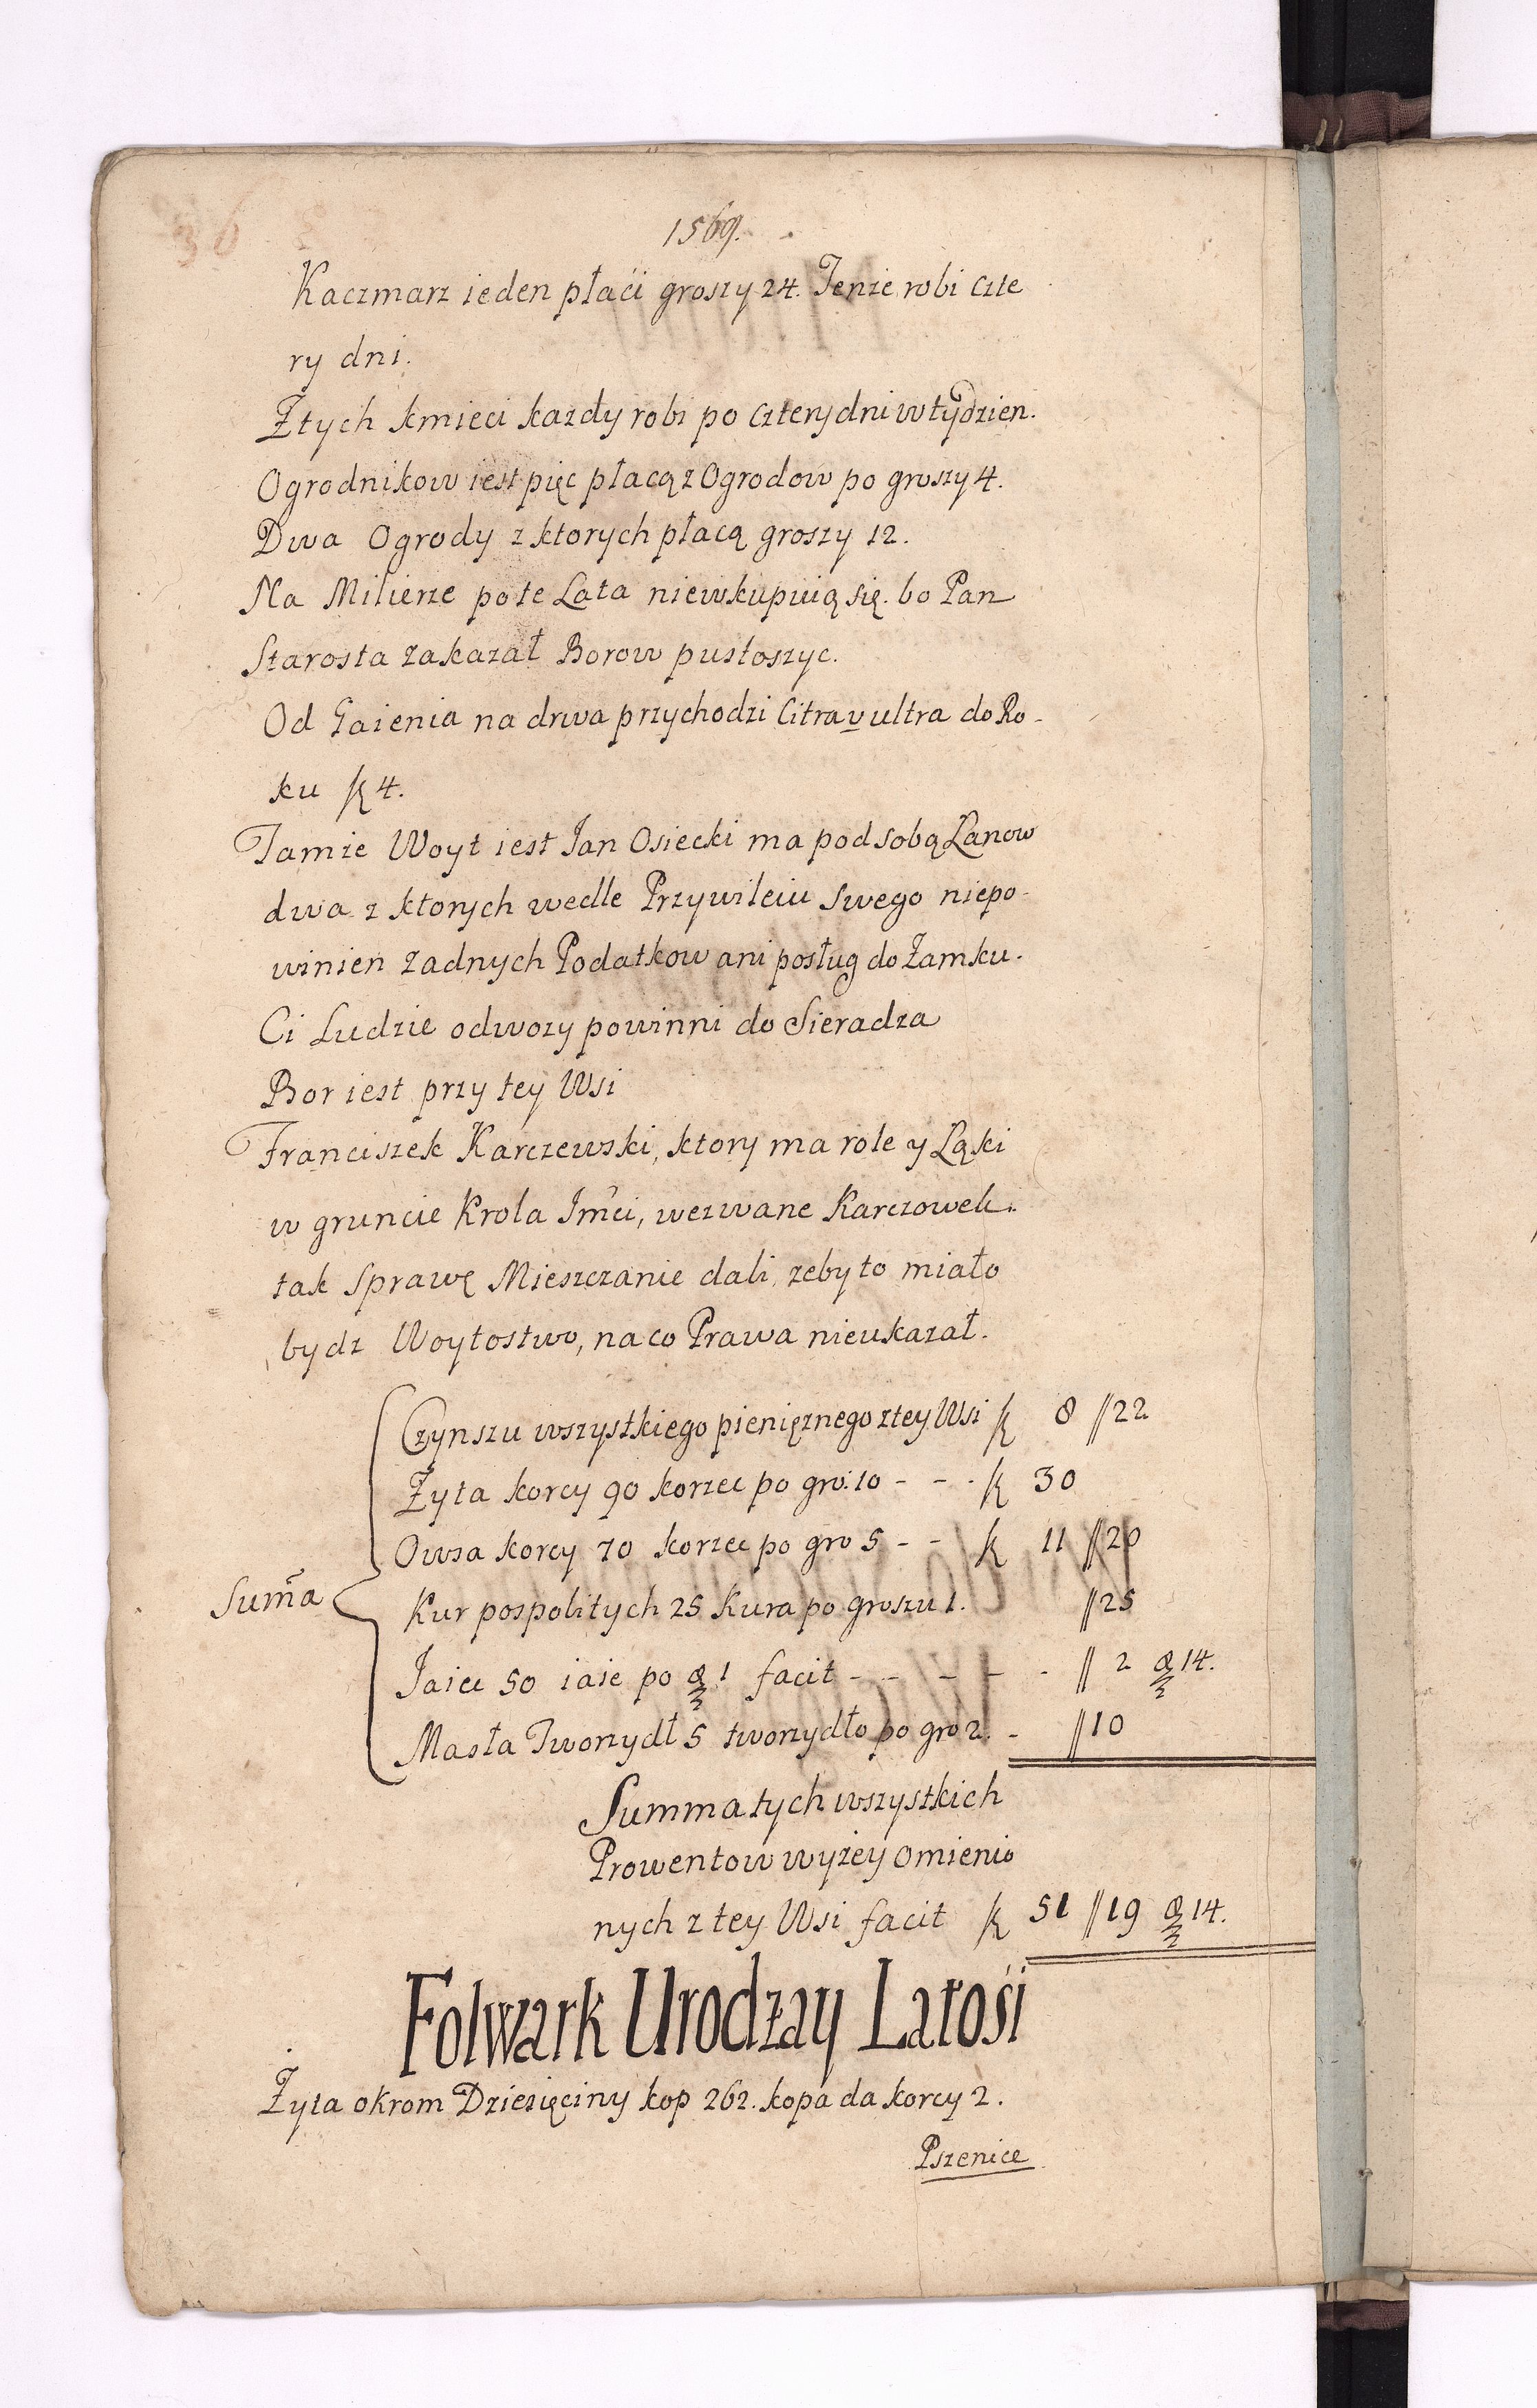 36
1569.
Kaczmarz ieden płaci groszy 24. Tenze robi czte
ry dni.
Ztych kmieci kazdy robi po cztery dni w tydzien.
Ogrodnikow iest pięc płacą z Ogrodow po groszy 4.
Dwa Ogrody z ktorych płacą groszy 12.
Na Milierze po te Lata niewkupuią się. bo Pan
Starosta zakazał Borow pustoszyc.
Od Gaienia na drwa przychodzi Citra v ultra do Ro-
ku k 4.
Tamze Woyt iest Jan Osiecki ma pod sobą Lanow
dwa z ktorych wedle Przywileiu swego niepo-
winien zadnych Podatkow ani posług do Zamku.
Ci Ludzie odwozy powinni do Sieradza
Bor iest przy tey Wsi
Franciszek Karczewski, ktory ma role y Ląki
w gruncie Krola Jm̃ci, wezwane Karczowek.
tak sprawę Mieszczanie dali, zeby to miało
bydz Woytostwo, na co Prawa nieukazał.
Czynszu wszystkiego pienięznego z tey Wsi k 8 //22
Żyta korcy 90 korzec po gro: 10 - - - k 30
Owsa korcy 70 korzec po gro 5 - - k 11 //20
Sum̃a
Kur pospolitych 25 Kura po groszu 1. //25
Jaiec 50 iaie po ₰ 1 facit - - - - - // 2 ₰ 14.
Masła Tworzydł 5 tworzydło po gro 2. - //10
Summa tych wszystkich
Prowentow wyżey omienio
nych z tey Wsi facit k 51 //19 ₰ 14.
Folwark Urodzay Latosi
Żyta okrom Dziesięciny kop 262. kopa da korcy 2.
Pszenice